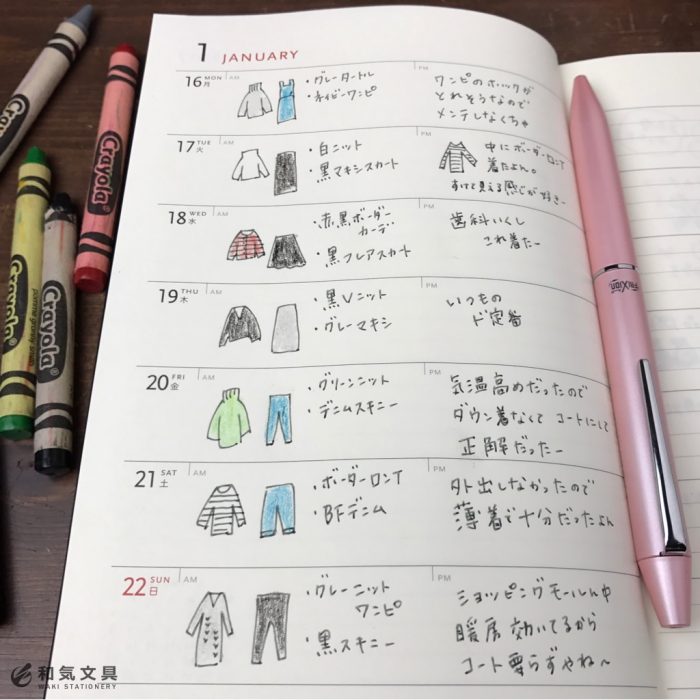 1 JANUARY
16 MON 月 AM PM
・グレータートル
・ネイビーワンピ
ワンピのホックが
とれそうなので
メンテしなくちゃ
17 TUE 火 AM PM
・白ニット
・黒マキシスカート
中にボーダーロンT
着たよん。
すけて見える感じが好きー
18 WED 水 AM PM
・赤黒ボーダー
カーデ
・黒フレアスカート
歯科いくし
これ着たー
19 THU 木 AM PM
・黒Vニット
・グレーマキシ
いつもの
ド定番
20 FRI 金 AM PM
・グリーンニット
・デニムスキニー
気温高めだったので
ダウン着なくて コートにして
正解だったー
21 SAT 土 AM PM
・ボーダーロンT
・BFデニム
外出しなかったので
薄着で十分だったよん
22 SUN 日 AM PM
・グレーニット
ワンピ
・黒スキニー
ショッピングモールん中
暖房効いてるから
コート要らずやね〜
Crayola
Crayola
Crayola
Crayola
FRIXION
和気文具
WAKI STATIONERY